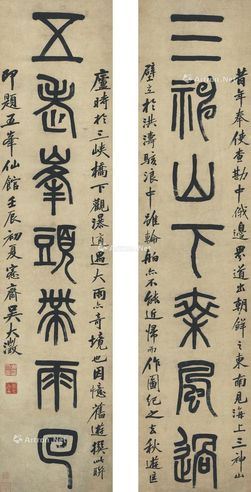 三神山下乘風過
昔年奉使查勘中俄邊界道出朝鮮之東南見海上三神山
壁立於洪濤駭浪中雖輪船亦不能近歸而作圖紀之去秋遊匡
五老峯頭帶雨回
廬時於三峽橋下觀瀑適遇大雨亦奇境也因憶舊遊撰此聯
即題五峯仙館壬辰初夏愙齋吳大澂
Artron.Net